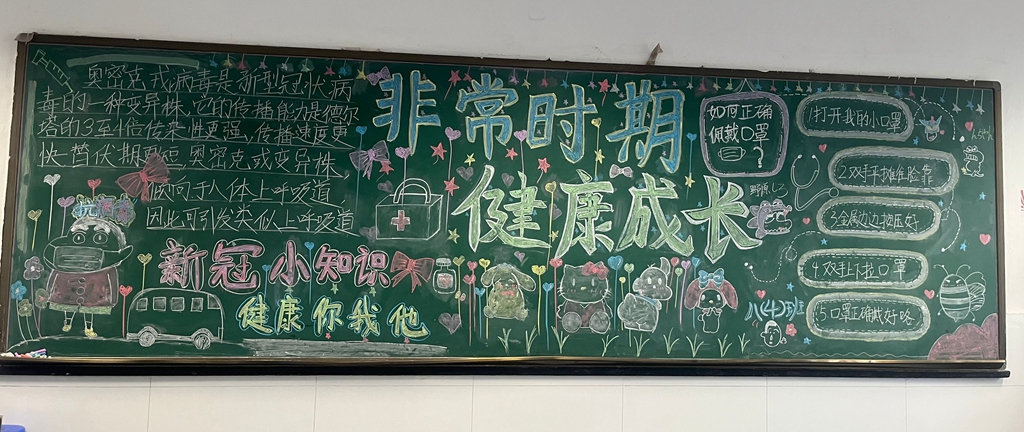 奥密克戎病毒是新型冠状病
毒的一种变异株,它的传播能力是德尔
塔的3至4倍传染性更强,传播速度更
快,替伏期更短,奥密克戎变异株,
倾向于人体上呼吸道,
因此可引发类似上呼吸道
抗
新冠小知识
健康你我他
非常时期
健康成长
如何正确
佩戴口罩
?
1打开我的小口罩
2.双手平摊往脸靠
3.金属边边捏压好
4.双手上下拉口罩
5口罩正确戴好咯
八(4)班